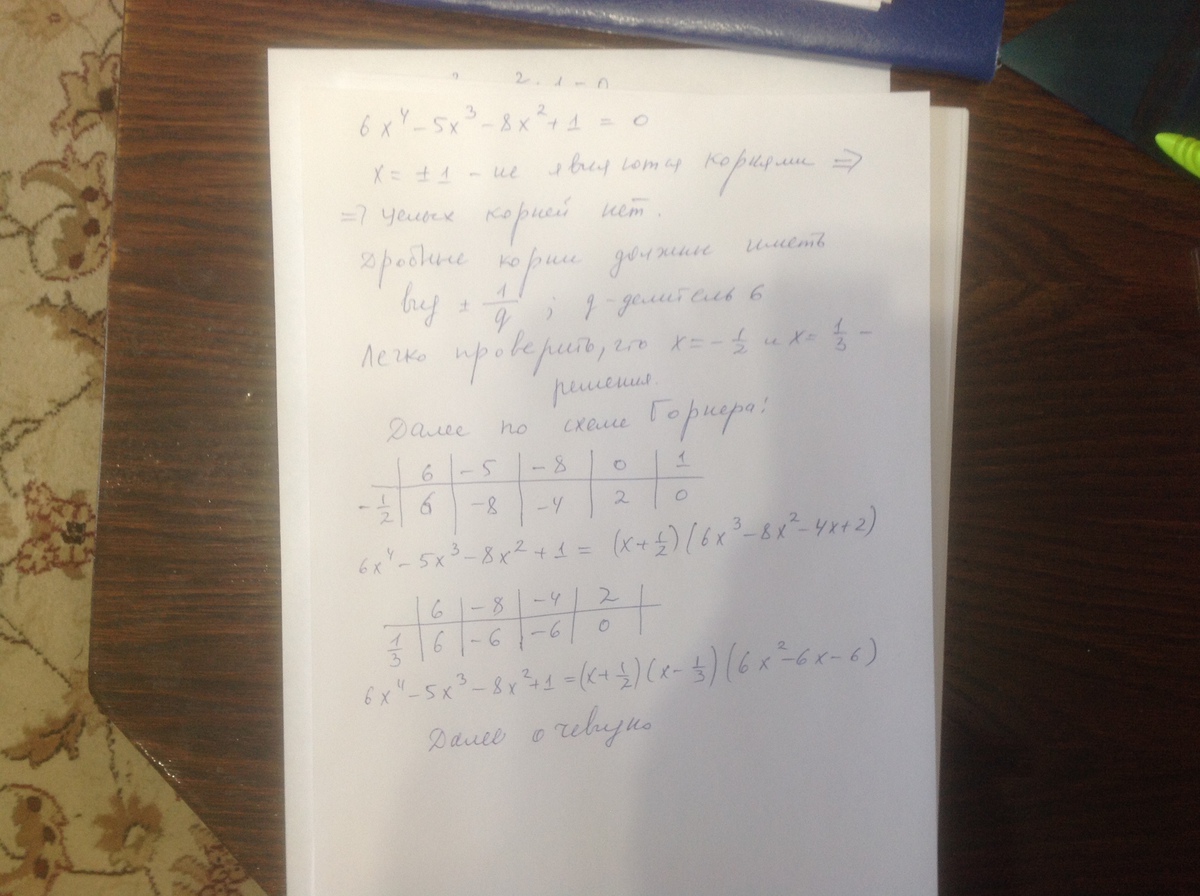 6x⁴ - 5x³ - 8x² + 1 = 0
x = ± 1 - не являются корнями ⇒
⇒ целых корней нет.
Дробные корни должны иметь
вид ± 1/q ; q - делитель 6
Легко проверить, что x = - 1/2 и x = 1/3 -
решения.
Далее по схеме Горнера:
| 6 | -5 | -8 | 0 | 1
-1/2 | 6 | -8 | -4 | 2 | 0
6x⁴ - 5x³ - 8x² + 1 = (x + 1/2)(6x³ - 8x² - 4x + 2)
| 6 | -8 | -4 | 2 |
1/3 | 6 | -6 | -6 | 0 |
6x⁴ - 5x³ - 8x² + 1 = (x + 1/2)(x - 1/3)(6x² - 6x - 6)
Далее очевидно